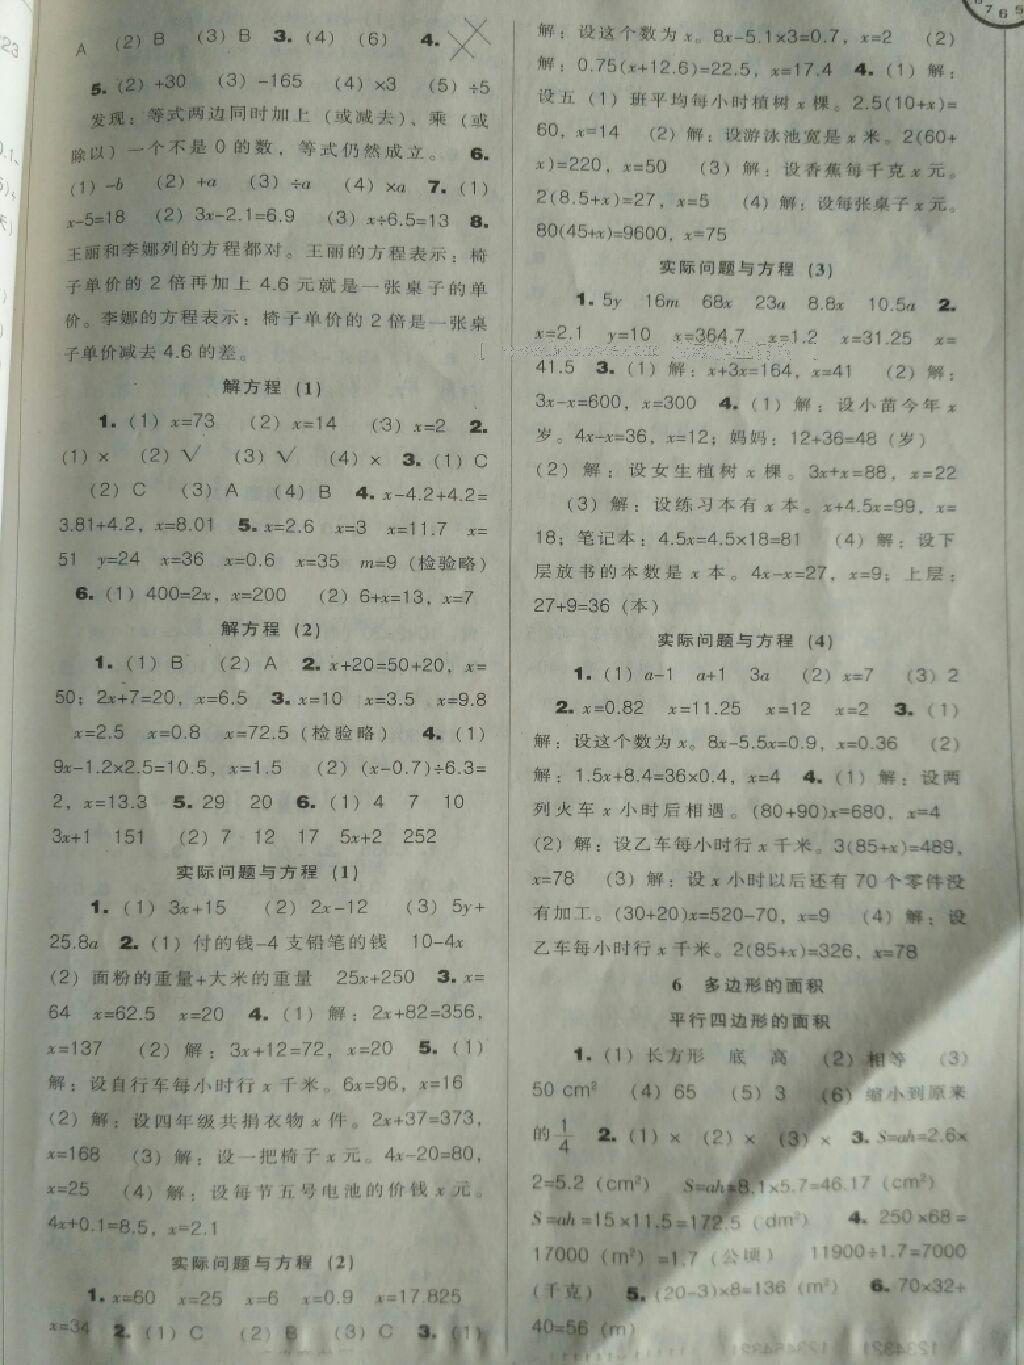 A (2) B (3) B 3. (4) (6) 4.
5. (2) +30 (3) -165 (4) ×3 (5) ÷5
发现：等式两边同时加上（或减去）、乘（或
除以）一个不是 0 的数，等式仍然成立。 6.
(1) -b (2) +a (3) ÷a (4) ×a 7. (1)
x-5=18 (2) 3x-2.1=6.9 (3) x÷6.5=13 8.
王丽和李娜列的方程都对。王丽的方程表示：椅
子单价的 2 倍再加上 4.6 元就是一张桌子的单
价。李娜的方程表示：椅子单价的 2 倍是一张桌
子单价减去 4.6 的差。
解方程 (1)
1. (1) x=73 (2) x=14 (3) x=2 2.
(1) × (2) √ (3) √ (4) × 3. (1) C
(2) C (3) A (4) B 4. x-4.2+4.2=
3.81+4.2，x=8.01 5. x=2.6 x=3 x=11.7 x=
51 y=24 x=36 x=0.6 x=35 m=9 (检验略)
6. (1) 400=2x，x=200 (2) 6+x=13，x=7
解方程 (2)
1. (1) B (2) A 2. x+20=50+20，x=
50；2x+7=20，x=6.5 3. x=10 x=3.5 x=9.8
x=2.5 x=0.8 x=72.5 (检验略) 4. (1)
9x-1.2×2.5=10.5，x=1.5 (2) (x-0.7)÷6.3=
2，x=13.3 5. 29 20 6. (1) 4 7 10
3x+1 151 (2) 7 12 17 5x+2 252
实际问题与方程 (1)
1. (1) 3x+15 (2) 2x-12 (3) 5y+
25.8a 2. (1) 付的钱-4 支铅笔的钱 10-4x
(2) 面粉的重量+大米的重量 25x+250 3. x=
64 x=62.5 x=20 4. (1) 解：2x+82=356，
x=137 (2) 解：3x+12=72，x=20 5. (1)
解：设自行车每小时行 x 千米。6x=96，x=16
(2) 解：设四年级共捐衣物 x 件。2x+37=373，
x=168 (3) 解：设一把椅子 x 元。4x-20=80，
x=25 (4) 解：设每节五号电池的价钱 x 元。
4x+0.1=8.5，x=2.1
实际问题与方程 (2)
1. x=60 x=25 x=6 x=0.9 x=17.825
x=34 2. (1) C (2) B (3) C 3. (1)
解：设这个数为 x。8x-5.1×3=0.7，x=2 (2)
解：0.75(x+12.6)=22.5，x=17.4 4. (1) 解：
设五 (1) 班平均每小时植树 x 棵。2.5(10+x)=
60，x=14 (2) 解：设游泳池宽是 x 米。2(60+
x)=220，x=50 (3) 解：设香蕉每千克 x 元。
2(8.5+x)=27，x=5 (4) 解：设每张桌子 x 元。
80(45+x)=9600，x=75
实际问题与方程 (3)
1. 5y 16m 68x 23a 8.8x 10.5a 2.
x=2.1 y=10 x=364.7 x=1.2 x=31.25 x=
41.5 3. (1) 解：x+3x=164，x=41 (2) 解：
3x-x=600，x=300 4. (1) 解：设小苗今年 x
岁。4x-x=36，x=12；妈妈：12+36=48（岁）
(2) 解：设女生植树 x 棵。3x+x=88，x=22
(3) 解：设练习本有 x 本。x+4.5x=99，x=
18；笔记本：4.5x=4.5×18=81 (4) 解：设下
层放书的本数是 x 本。4x-x=27，x=9；上层：
27+9=36（本）
实际问题与方程 (4)
1. (1) a-1 a+1 3a (2) x=7 (3) 2
2. x=0.82 x=11.25 x=12 x=2 3. (1)
解：设这个数为 x。8x-5.5x=0.9，x=0.36 (2)
解：1.5x+8.4=36×0.4，x=4 4. (1) 解：设两
列火车 x 小时后相遇。(80+90)x=680，x=4
(2) 解：设乙车每小时行 x 千米。3(85+x)=489，
x=78 (3) 解：设 x 小时以后还有 70 个零件没
有加工。(30+20)x=520-70，x=9 (4) 解：设
乙车每小时行 x 千米。2(85+x)=326，x=78
6 多边形的面积
平行四边形的面积
1. (1) 长方形 底 高 (2) 相等 (3)
50 cm² (4) 65 (5) 3 (6) 缩小到原来
的 1/4 2. (1) × (2) × (3) × 3. S=ah=2.6×
2=5.2 (cm²) S=ah=8.1×5.7=46.17 (cm²)
S=ah=15×11.5=172.5 (dm²) 4. 250×68=
17000 (m²) =1.7（公顷） 11900÷1.7=7000
（千克） 5. (20-3)×8=136 (m²) 6. 70×32÷
40=56 (m)